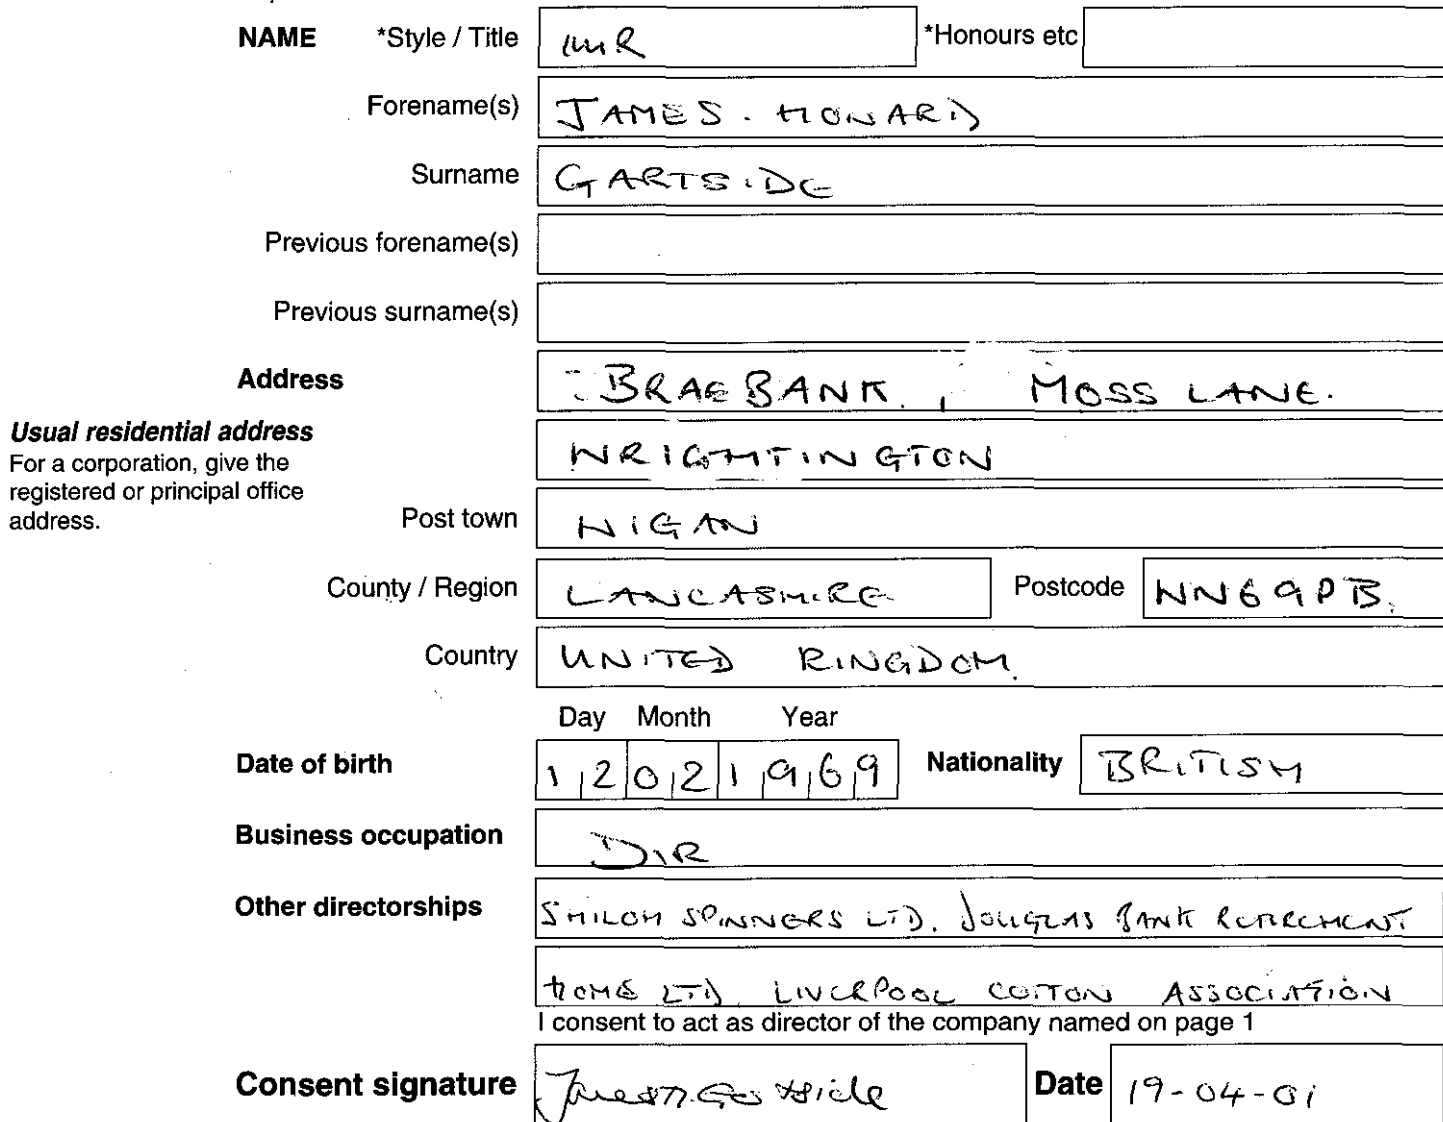 NAME *Style / Title MR *Honours etc
Forename(s) JAMES. HOWARD
Surname GARTSIDE
Previous forename(s)
Previous surname(s)
Address BRAEBANK, MOSS LANE.
Usual residential address
For a corporation, give the
registered or principal office
address.
WRIGHTINGTON
Post town WIGAN
County / Region LANCASHIRE Postcode WN6 9PB.
Country UNITED KINGDOM.
Day Month Year
Date of birth 12 02 1969 Nationality BRITISH
Business occupation DIR
Other directorships SHILOH SPINNERS LTD. DOUGLAS BANK RETIREMENT
HOME LTD LIVERPOOL COTTON ASSOCIATION
I consent to act as director of the company named on page 1
Consent signature James H. Gartside Date 19-04-01